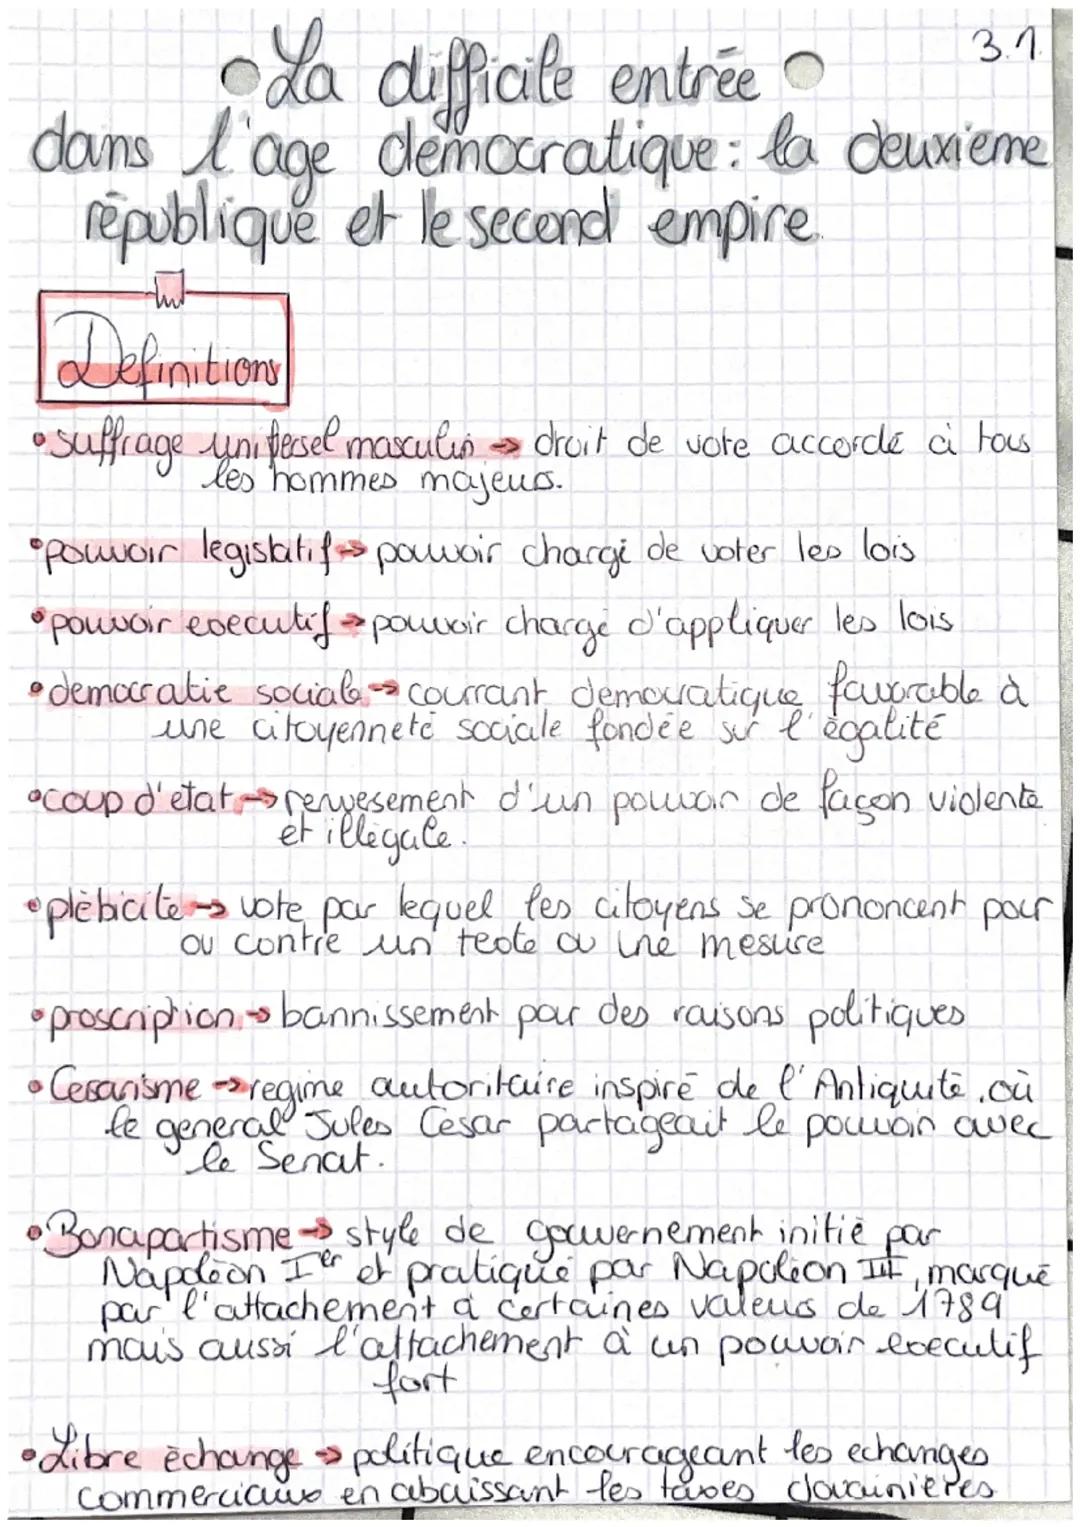 3.1.
La difficile entrée
dans l'age democratique: la deuxieme
république et le second empire.
Definitions
• suffrage universel masculin → droit de vote accordé à tous
les hommes majeurs.
• pouvoir legislatif → pouvoir chargé de voter les lois
• pouvoir executif → pouvoir chargé d'appliquer les lois
• democratie sociale → courrant democratique favorable à
une citoyenneté sociale fondée sur l'égalité
• coup d'etat → renvesement d'un pouvoir de façon violente
et illégale.
• plébicite → vote par lequel les citoyens se prononcent pour
ou contre un texte ou une mesure
• proscription → bannissement pour des raisons politiques
• Cesarisme → regime autoritaire inspiré de l'Antiquité, où
le general Jules Cesar partageait le pouvoir avec
le Senat.
• Bonapartisme → style de gouvernement initié par
Napoléon Ier et pratiqué par Napoléon III, marqué
par l'attachement à certaines valeurs de 1789
mais aussi l'attachement à un pouvoir executif
fort
• Libre échange → politique encourageant les echanges
commerciaux en abaissant les taxes douainieres